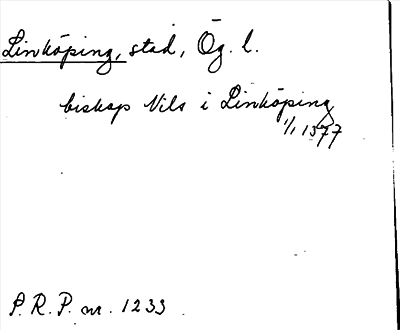 Linköping, stad, Ög. l.
biskop Nils i Linköping
1/1 1377
P. R. P. nr. 1233